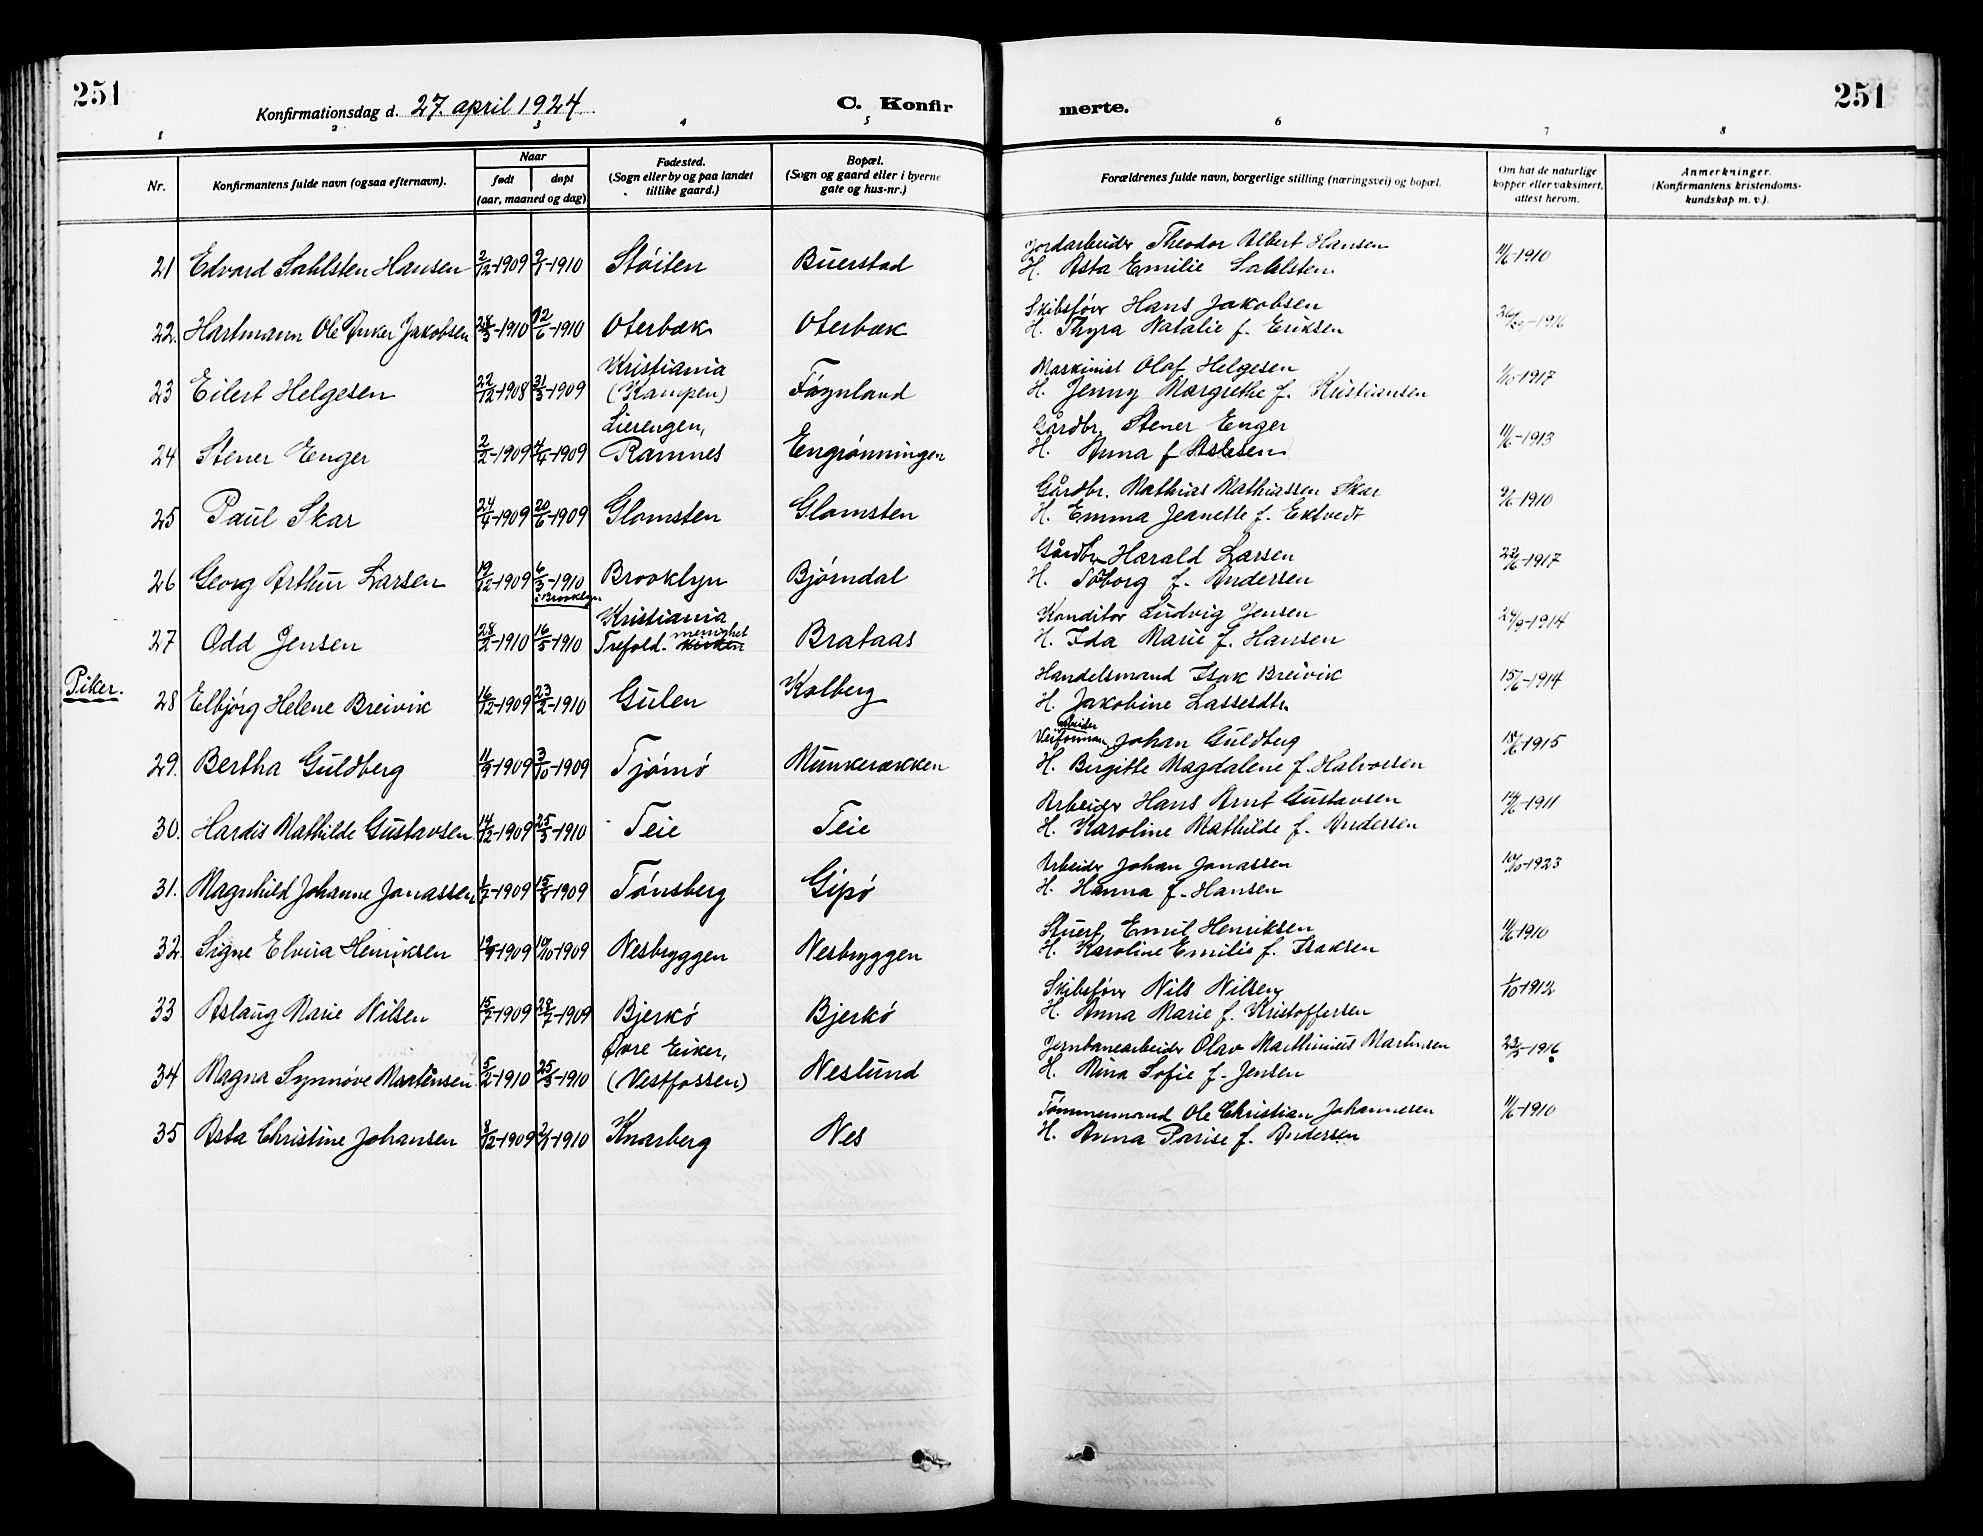 251
Konfirmationsdag d. 27. april 1924
C. Konfir
merte.
251
1 2 3 4 5 6 7 8
Nr.
Konfirmantens fulde navn (ogsaa efternavn).
Naar
født
døpt
(aar, maaned og dag)
Fødested.
(Sogn eller by og paa landet
tillike gaard.)
Bopæl.
(Sogn og gaard eller i byerne
gate og hus-nr.)
Forældrenes fulde navn, borgerlige stilling (næringsvei) og bopæl.
Om hat de naturlige
kopper eller vaksinert,
attest herom.
Anmerkninger.
(Konfirmantens kristendoms-
kundskap m. v.).
Jordarbeider Theodor Albert Hansen
21 Edvard Sahlsten Hansen 2/12-1909 9/1-1910 Støiten Buerstad H. Asta Emilie Sahlsten 11/6-1910
Skibsfører Hans Jakobsen
22. Hartmann Ole Anker Jakobsen 28/3-1910 12/6-1910 Oterbæk Oterbæk H. Thyra Natalie f. Eriksen -1916
Kristiania Maskinist Olaf Helgesen
23 Eilert Helgesen 22/12-1908 31/3-1909 (Kampen) Føynland H. Jenny Margrethe f. Kristiansen 1/10-1917
Lierengen, Gårdbr. Stener Enger
24 Stener Enger 2/2-1909 4/4-1909 Ramnes Engrønningen H. Anna f Aslesen 11/6-1913
Gårdbr. Mathias Mathiassen Skar
25 Paul Skar 24/4-1909 20/6-1909 Glomsten Glomsten H. Emma Jeanette f. Ektvedt 9/6-1910
Gårdbr. Harald Larsen
26 Georg Arthur Larsen 19/12-1909 6/3-1910 Brooklyn Bjørndal H. f. Andersen 23/6-1917
i Brooklyn
Kristiania Konditor Ludvig Jensen
27 Odd Jensen 28/2-1910 16/5-1910 Trefold. menighet kirken Brataas H. Ida Marie f. Hansen 29/9-1914
Piker.
Handelsmand Isak Breivik
28 Elbjørg Helene Breivik 16/12-1909 23/2-1910 Gulen Kolberg H. Jakobine Lassesdtr. 15/6-1914
arbeider
Veiformann Johan Guldberg
29. Bertha Guldberg 11/9-1909 3/10-1909 Tjømø Munkerækken H. Birgitte Magdalene f. Halvorsen 18/6-1915
Arbeider Hans Arnt Gustavsen
30. Hardis Mathilde Gustavsen 14/12-1909 25/3-1910 Teie Teie H. Karoline Mathilde f. Andersen 14/6-1911
Arbeider Johan Jonassen
31. Magnhild Johanne Jonassen 1/7-1909 15/8-1909 Tønsberg Gipø H. Hanna f. Hansen 10/10-1923
Stuert Emil Henriksen
32 Signe Elvira Henriksen 19/9-1909 10/10-1909 Nesbryggen Nesbryggen H. Karoline Emilie f. Isaksen 11/6-1910
Skibsfører Nils Nilsen
33 Aslaug Marie Nilsen 15/7-1909 28/7-1909 Bjerkø Bjerkø H. Anna Marie f. Kristoffersen 1/10-1912
Øvre Eiker, Jernbanearbeider Olav Marthinius Martinsen
34 Magna Synnøve Martinsen 5/2-1910 25/3-1910 (Vestfossen) Neslund H. Nina Sofie f. Jensen 23/5-1916
Tømmermand Ole Christian Johannesen
35 Asta Christine Johansen 3/12-1909 2/1-1910 Knarberg Nes H. Anna f. Andersen 11/6-1910